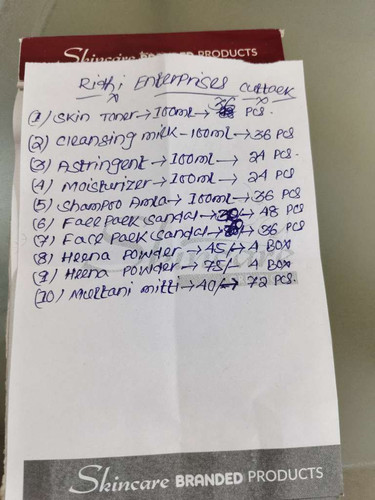 Skincare BRANDED PRODUCTS
Ridhi Enterprises Cuttack
(1) Skin Toner → 100ml → 36 PCS.
(2) Cleansing milk - 100ml → 36 PCS
(3) Astringent → 100ml → 24 PCS.
(4) Moisturizer → 100ml → 24 PCS
(5) Shampoo Amla → 100ml → 36 PCS
(6) Face Pack Sandal → → 48 PCS
(7) Face Pack Sandal → → 36 PCS
(8) Heena Powder → 45/- → 4 BOX
(9) Heena Powder → 75/- 4 BOX
(10) Multani mitti → 40/- → 72 PCS.
Skincare BRANDED PRODUCTS